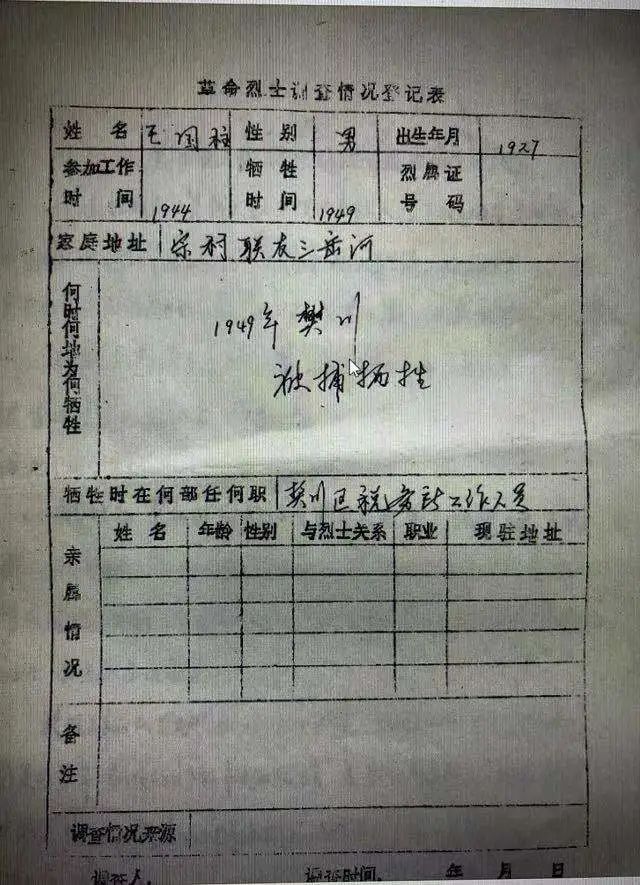 革命烈士调查情况登记表
姓名 王国柱 性别 男 出生年月 1927
参加工作时间 1944 牺牲时间 1949 烈属证号码
家庭地址 宗村联友三岳河
何时何地为何牺牲
1949年樊川
被捕牺牲
牺牲时在何部任何职 樊川区税务所工作人员
亲属情况 姓名 年龄 性别 与烈士关系 职业 现驻地址
备注
调查情况来源
调查人. 调查时间. 年 月 日